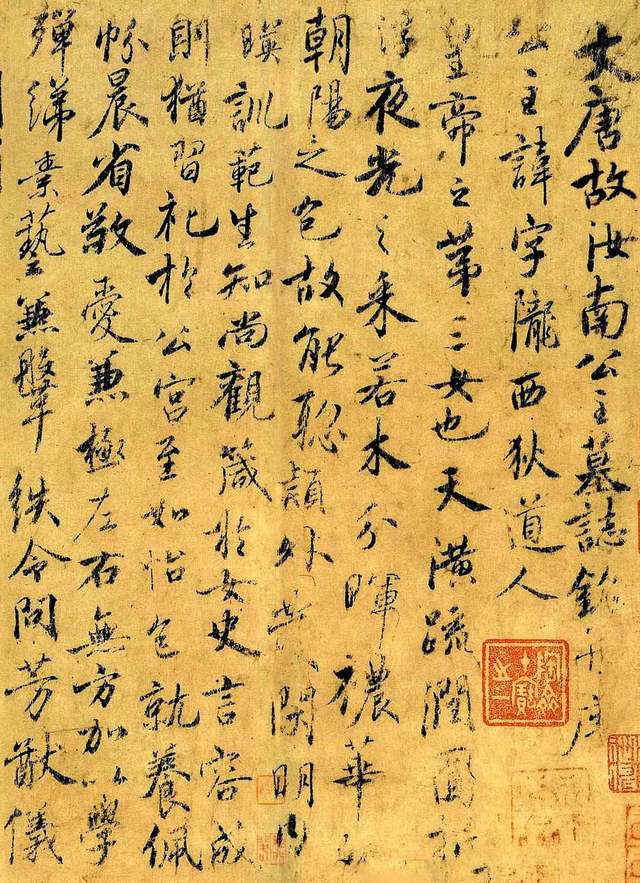 大唐故汝南公主墓誌銘并序
公主諱字隴西狄道人
皇帝之第三女也天潢疏潤圓折
浮夜光之采若木分暉襛華
朝陽之色故能聰穎外發閑明內
暎訓範生知尚觀箴於女史言容成
則猶習礼於公宮至如怡色就養佩
帉晨省敬愛兼極左右無方加以學
殫綈素藝兼鞶紩令問芳猷儀